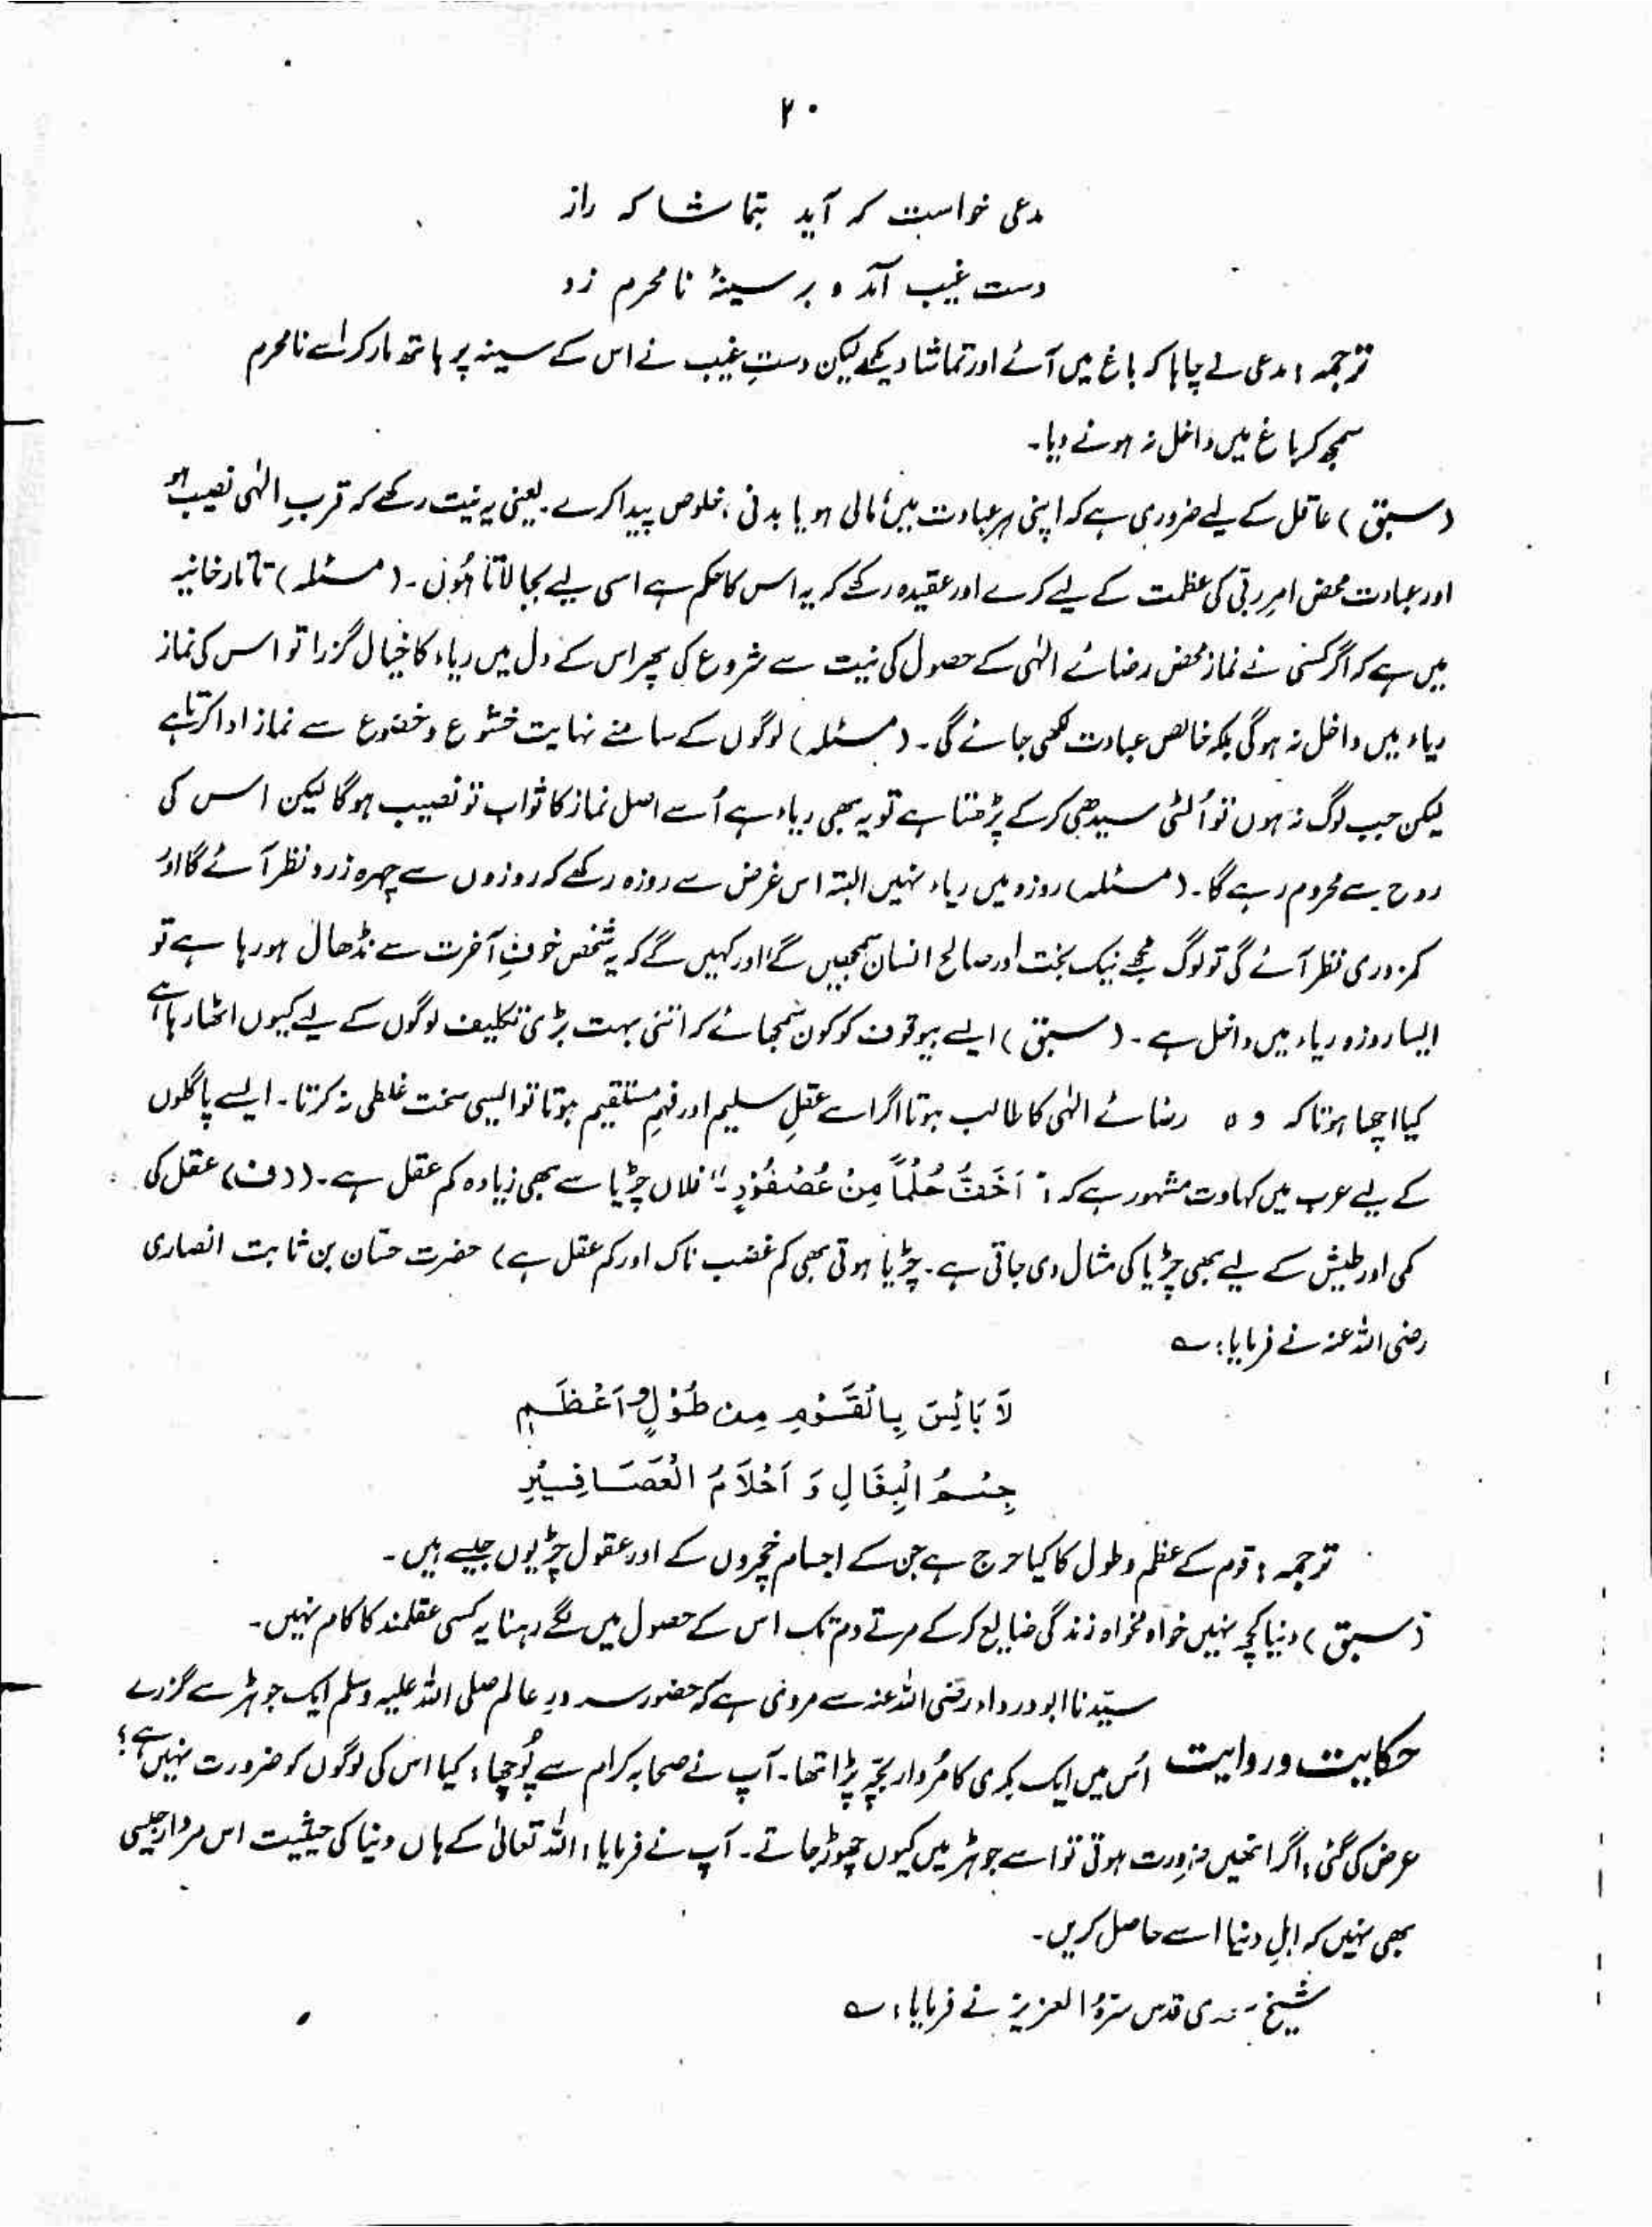 ۲۰
مدعی خواست کہ آید بتماشا کہ راز
دست غیب آمد و بر سینۂ نامحرم زد
ترجمہ: مدعی نے چاہا کہ باغ میں آئے اور تماشا دیکھے لیکن دستِ غیب نے اس کے سینہ پر ہاتھ مار کر اسے نامحرم
سمجھ کر باغ میں داخل نہ ہونے دیا۔
(سبق) عاقل کے لیے ضروری ہے کہ اپنی ہر عبادت میں، مالی ہو یا بدنی، خلوص پیدا کرے۔ یعنی یہ نیت رکھے کہ قربِ الٰہی نصیب ہو
اور عبادت محض امرِ ربّی کی عظمت کے لیے کرے اور عقیدہ رکھے کہ یہ اس کا حکم ہے اسی لیے بجا لاتا ہُوں۔ (مسئلہ) تاتارخانیہ
میں ہے کہ اگر کسی نے نماز محض رضائے الٰہی کے حصول کی نیت سے شروع کی پھر اس کے دل میں ریاء کا خیال گزرا تو اس کی نماز
ریاء میں داخل نہ ہوگی بلکہ خالص عبادت لکھی جائے گی۔ (مسئلہ) لوگوں کے سامنے نہایت خشوع و خضوع سے نماز ادا کرتا ہے
لیکن جب لوگ نہ ہوں تو اُلٹی سیدھی کرکے پڑھتا ہے تو یہ بھی ریاء ہے اُسے اصل نماز کا ثواب تو نصیب ہوگا لیکن اس کی
روح سے محروم رہے گا۔ (مسئلہ) روزہ میں ریاء نہیں البتہ اس غرض سے روزہ رکھے کہ روزوں سے چہرہ زرد نظر آئے گا اور
کمزوری نظر آئے گی تو لوگ مجھے نیک بخت اور صالح انسان سمجھیں گے اور کہیں گے کہ یہ شخص خوفِ آخرت سے نڈھال ہو رہا ہے تو
ایسا روزہ ریاء میں داخل ہے۔ (سبق) ایسے بیوقوف کو کون سمجھائے کہ اتنی بہت بڑی تکلیف لوگوں کے لیے کیوں اٹھا رہا ہے
کیا اچھا ہوتا کہ وہ رضائے الٰہی کا طالب ہوتا اگر اسے عقلِ سلیم اور فہمِ مستقیم ہوتا تو ایسی سخت غلطی نہ کرتا۔ ایسے پاگلوں
کے لیے عرب میں کہاوت مشہور ہے کہ: "اَخَفُّ حُلْمًا مِنْ عُصْفُوْرٍ" فلاں چڑیا سے بھی زیادہ کم عقل ہے۔ ((ف) عقل کی
کمی اور طیش کے لیے بھی چڑیا کی مثال دی جاتی ہے۔ چڑیا ہوتی بھی کم غضب ناک اور کم عقل ہے) حضرت حسّان بن ثابت انصاری
رضی اللہ عنہ نے فرمایا: ؎
لَا بَأْسَ بِالْقَوْمِ مِنْ طُوْلٍ وَّاَعْظَمٍ
جِسْمُ الْبِغَالِ وَ اَحْلَامُ الْعَصَافِیْرِ
ترجمہ: قوم کے عظم و طول کا کیا حرج ہے جن کے اجسام خچروں کے اور عقول چڑیوں جیسے ہیں۔
(سبق) دنیا کچھ نہیں خواہ مخواہ زندگی ضایع کرکے مرتے دم تک اس کے حصول میں لگے رہنا یہ کسی عقلمند کا کام نہیں۔
سیّدنا ابودرداء رضی اللہ عنہ سے مروی ہے کہ حضور سرورِ عالم صلی اللہ علیہ وسلم ایک جوہڑ سے گزرے
حکایت و روایت اُس میں ایک بکری کا مُردار بچّہ پڑا تھا۔ آپ نے صحابہ کرام سے پُوچھا: کیا اس کی لوگوں کو ضرورت نہیں ہے؟
عرض کی گئی: اگر انھیں ضرورت ہوتی تو اسے جوہڑ میں کیوں چھوڑ جاتے۔ آپ نے فرمایا: اللہ تعالیٰ کے ہاں دنیا کی حیثیت اس مردار جیسی
بھی نہیں کہ اہلِ دنیا اسے حاصل کریں۔
شیخ سعدی قدس سرہُ العزیز نے فرمایا: ؎